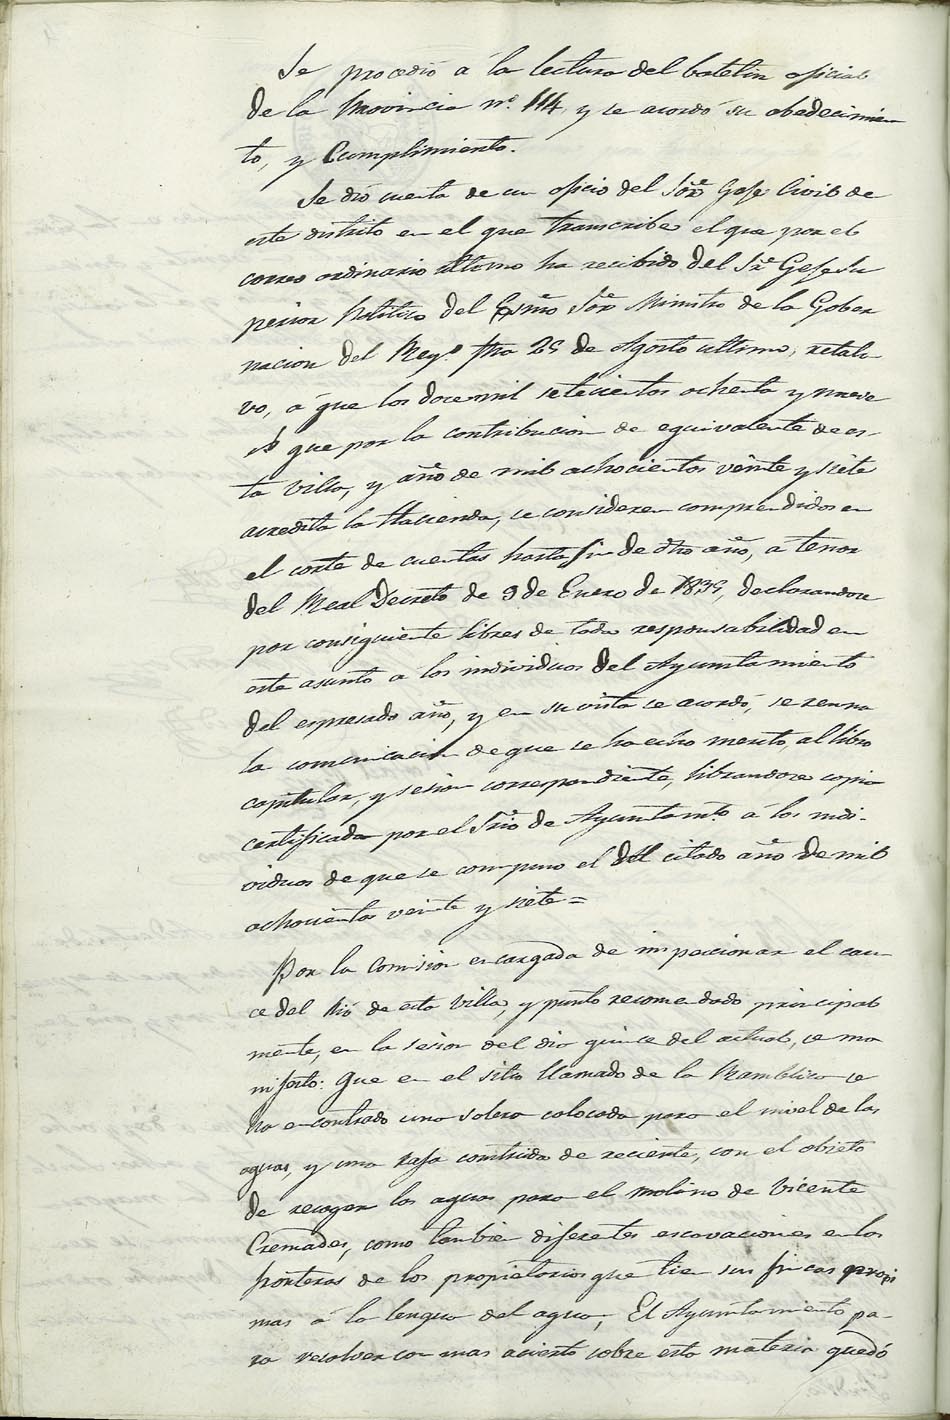 Se procedió á la lectura del boletin oficial
de la Provincia nº. 114, y se acordó su obedecimien
to, y Cumplimiento.
Se dió cuenta de un oficio del Sor. Gefe Civil de
este distrito en el que transcribe el que por el
correo ordinario ultimo ha recibido del Sr. Gefe Su
perior Politico del Esmo. Sor. Ministro de la Gober
nacion del Reyº. fha 25 de Agosto ultimo, relati
vo, á que los doce mil setecientos ochenta y nueve
rs que por la contribucion de equivalente de es-
ta Villa, y año de mil achocientos veinte y siete
acredita la Hacienda, se consideren comprendidos en
el corte de cuentas hasta fin de dho año, á tenor
del Real Decreto de 9 de Enero de 1835, declarandose
por consiguiente libres de toda responsabilidad en
este asunto á los individuos del Ayuntamiento
del espresado año, y en su vista se acordó, se reuna
la comunicacion de que se ha echo merito, al libro
capitular, y sesion correspondiente, librandose copia
certificada por el Srio. de Ayuntamto. á los indi-
viduos de que se compuso el del citado año de mil
achocientos veinte y siete =
Por la Comision encargada de inspeccionar el cau
ce del Rió de esta Villa, y punto recomendado principal
mente, en la sesion del dia quince del actual, se ma
nifestó: Que en el sitio llamado de la Ramblica se
ha encontrado una solera colocada para el nivel de las
aguas, y una rafa construida de reciente, con el obieto
de recoger las aguas para el molino de Vicente
Cremades, como tanbien diferentes escavaciones en los
fronteras de los propietarios que tien sus fincas procsi
mas á la lengua del agua; El Ayuntamiento pa-
ra resolver con mas acierto sobre esta materia quedó